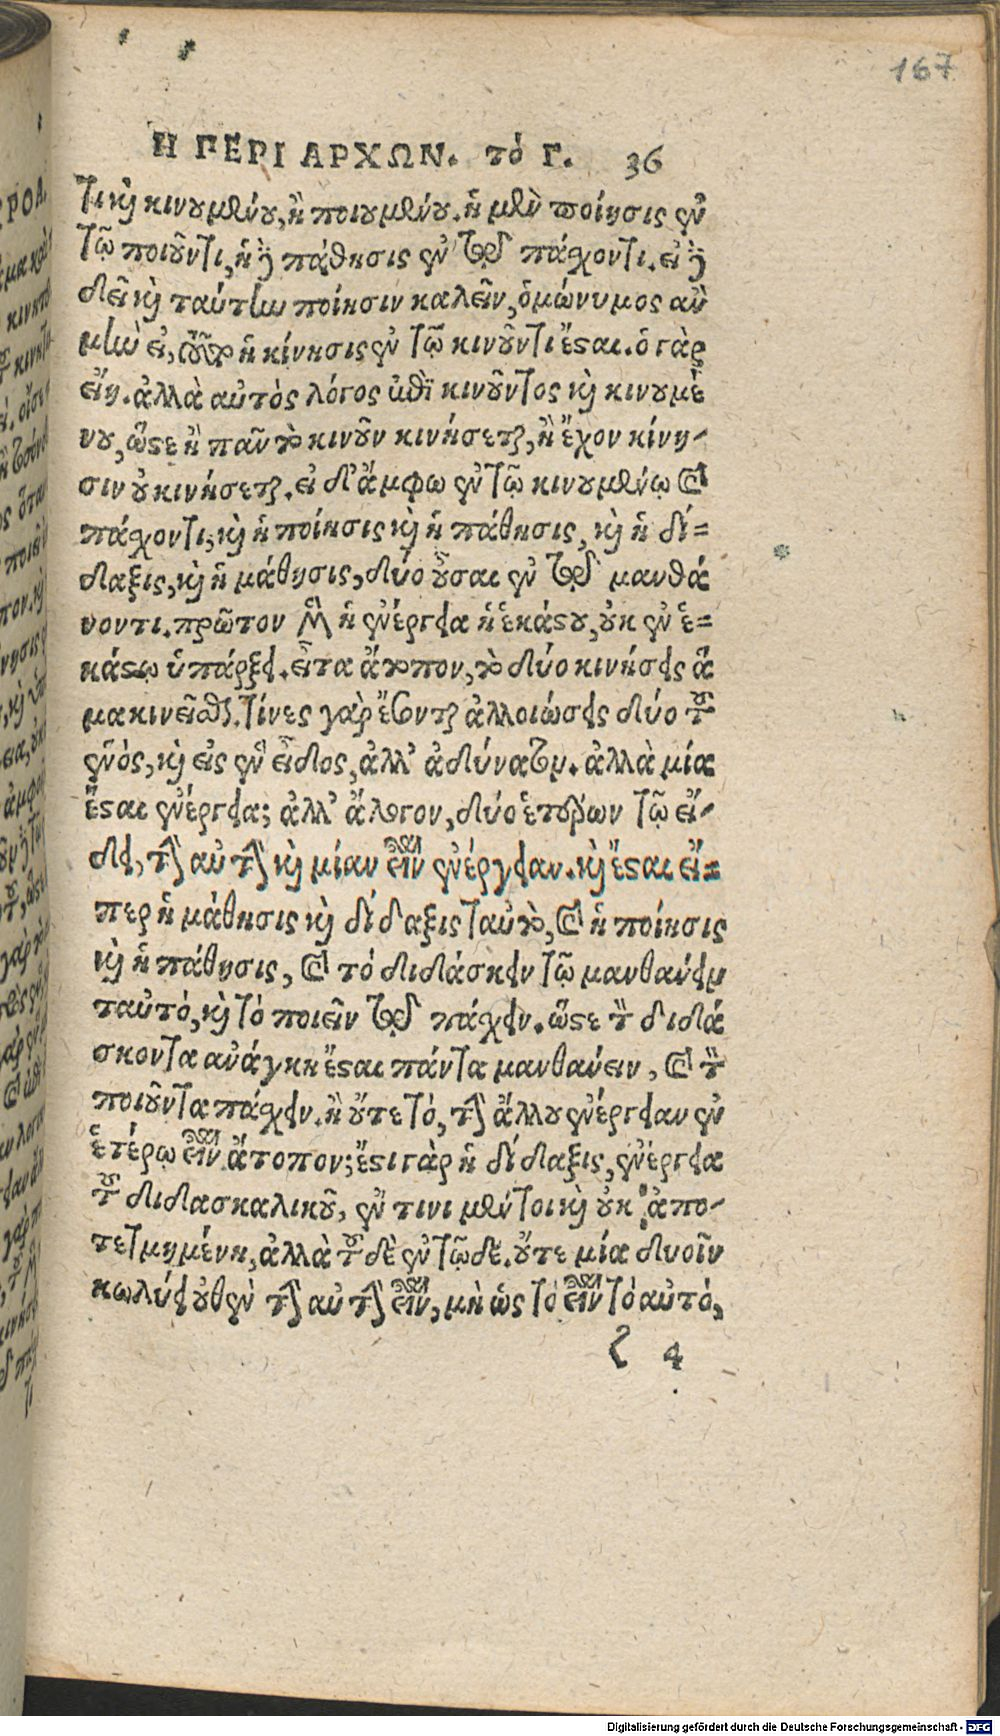 167
Η ΠΕΡΙ ΑΡΧΩΝ. τό Γ. 36
τι καὶ κινουμένου, ἢ ποιουμένου. ἡ μὲν ποίησις ἐν
τῷ ποιοῦντι, ἡ δὲ πάθησις ἐν τῷ πάχοντι. εἰ δὲ
δεῖ καὶ ταύτην ποίησιν καλεῖν, ὁμώνυμος ἂν
εἴη. ἀλλὰ μὴν εἰ τοῦτο, ἡ κίνησις ἐν τῷ κινοῦντι ἔσται. ὁ γὰρ
αὐτὸς λόγος ἐπὶ κινοῦντος καὶ κινουμέ
νου, ὥστε ἢ πᾶν τὸ κινοῦν κινήσεται, ἢ ἔχον κίνη-
σιν οὐ κινήσεται. εἰ δ' ἄμφω ἐν τῷ κινουμένῳ καὶ
πάχοντι, καὶ ἡ ποίησις καὶ ἡ πάθησις, καὶ ἡ δί=
δαξις, καὶ ἡ μάθησις, δύο οὖσαι ἐν τῷ μανθά
νοντι. πρῶτον μὲν ἡ ἐνέργεια ἡ ἑκάστου, οὐκ ἐν ἑ=
κάστῳ ὑπάρξει. εἶτα ἄτοπον, τὸ δύο κινήσεις ἅ
μα κινεῖσθαι. τίνες γὰρ ἔσονται ἀλλοιώσεις δύο τοῦ
ἑνὸς, καὶ εἰς ἓν εἶδος, ἀλλ' ἀδύνατον. ἀλλὰ μία
ἔσται ἐνέργεια; ἀλλ' ἄλογον, δύο ἑτέρων τῷ εἴ-
δει, τὴν αὐτὴν καὶ μίαν εἶναι ἐνέργειαν. καὶ ἔσται εἴ=
περ ἡ μάθησις καὶ δίδαξις ταὐτὸ, καὶ ἡ ποίησις
καὶ ἡ πάθησις, καὶ τό διδάσκειν τῷ μανθανειν
ταὐτό, καὶ τὸ ποιεῖν τῷ πάχειν. ὥστε τὸν διδά
σκοντα ἀνάγκη ἔσται πάντα μανθάνειν, καὶ τὸν
ποιοῦντα πάχειν. ἢ οὔτε τὸ, τὴν ἄλλου ἐνέργειαν ἐν
ἑτέρῳ εἶναι ἄτοπον; ἔστι γὰρ ἡ δίδαξις, ἐνέργεια
τοῦ διδασκαλικοῦ, ἔν τινι μέντοι καὶ οὐκ ἀπο-
τετμημένη, ἀλλὰ τοῦδε ἐν τῷδε. οὔτε μία δυοῖν
κωλύει οὐθὲν τὴν αὐτὴν εἶναι, μὴ ὡς τὸ εἶναι τὸ αὐτό,
4
Digitalisierung gefördert durch die Deutsche Forschungsgemeinschaft - DFG